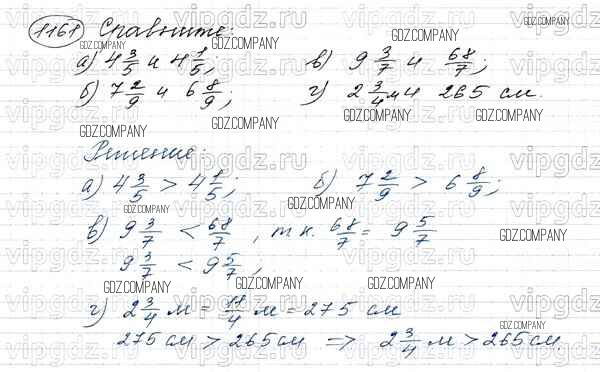 1161 Сравните:
а) 4 3/5 и 4 1/5; в) 9 3/7 и 68/7;
б) 7 2/9 и 6 8/9; г) 2 3/4 м и 265 см.
Решение:
а) 4 3/5 > 4 1/5; б) 7 2/9 > 6 8/9;
в) 9 3/7 < 68/7, т.к. 68/7 = 9 5/7
9 3/7 < 9 5/7,
г) 2 3/4 м = 11/4 м = 275 см
275 см > 265 см => 2 3/4 м > 265 см
vipgdz.ru
GDZ.COMPANY